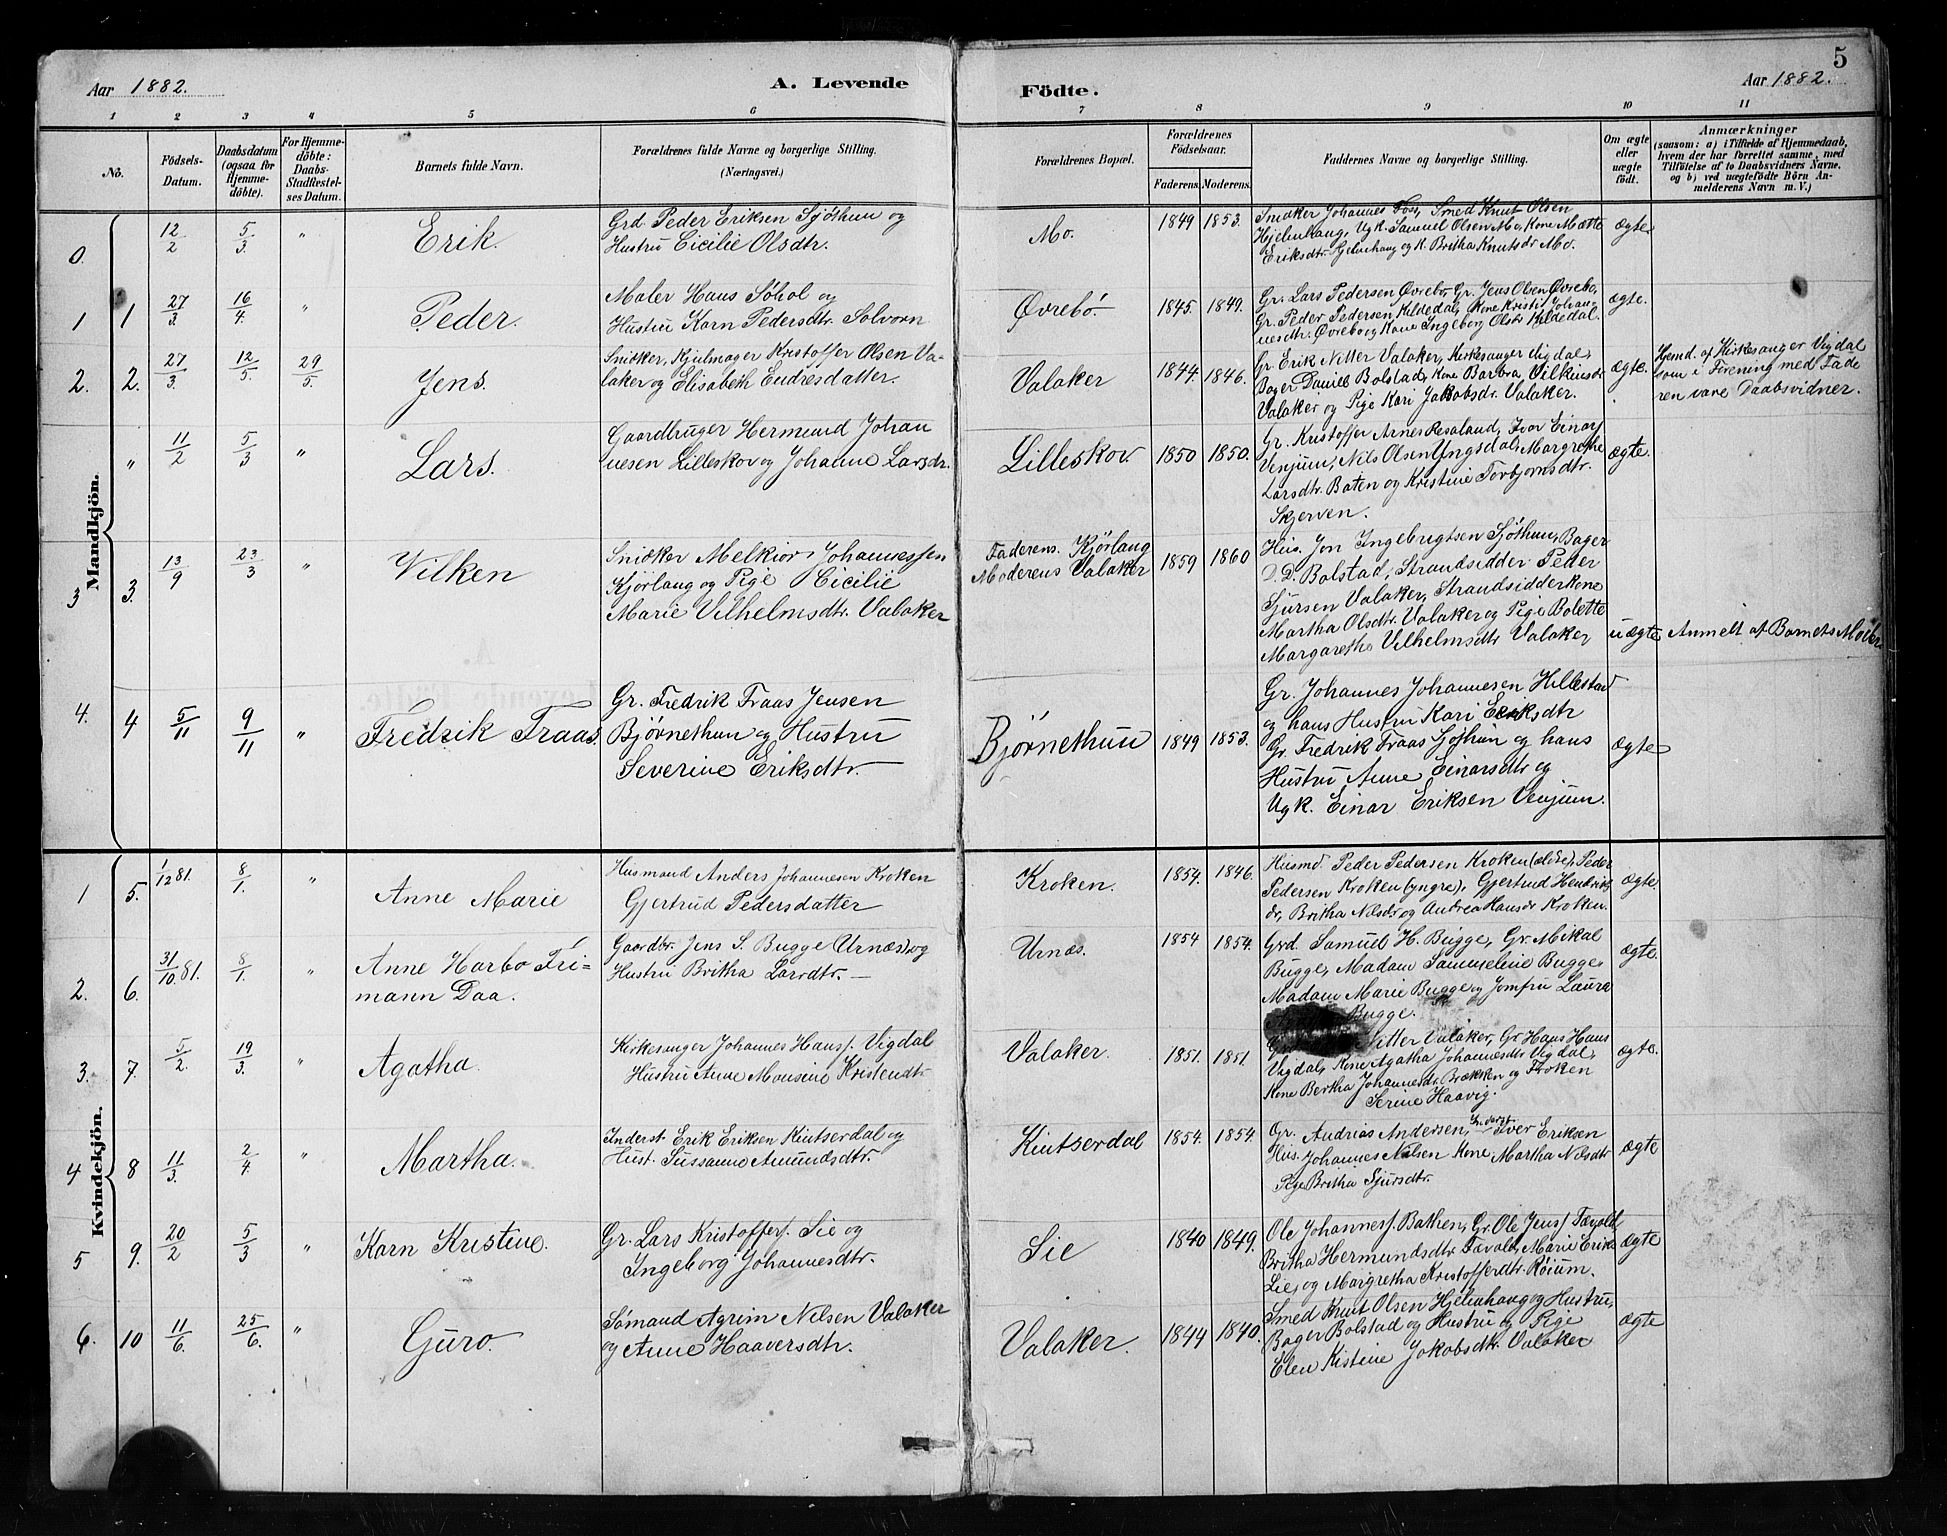 5
Aar 1882.
A. Levende Födte.
Aar 1882.
1 2 3 4 5 6 7 8 9 10 11
No.
Födsels-
Datum.
Daabsdatum
(ogsaa for
Hjemme-
döbte).
For Hjemme-
döbte:
Daabs-
Stadfæstel-
ses Datum.
Barnets fulde Navn.
Forældrenes fulde Navne og borgerlige Stilling.
(Næringsvei.)
Forældrenes Bopæl.
Forældrenes
Födselsaar.
Faderens. Moderens.
Faddernes Navne og borgerlige Stilling.
Om ægte
eller
uægte
födt.
Anmærkninger
(saasom: a) i Tilfælde af Hjemmedaab,
hvem der har forrettet samme, med
Tilföielse af to Daabsvidners Navne.
og b) ved uægtefödte Börn An-
melderens Navn m. V.)
Mandkjön.
0. 12/2 5/3. " Erik.
Grd Peder Eriksen Sjøthun og
Hustru Cicilie Olsdtr.
Mo. 1849 1853.
Snidker Johannes Foss, Smed Knut Olsen
Hjelmhaug, Ugk. Samuel Olsen Mo, Kone Mætte
Eriksdtr. Hjelmhaug og K. Britha Knutsdr Mo.
ægte
1 1 27/3. 16/4. " Peder.
Maler Hans Søhol og
Hustru Karn Pedersdtr. Solvorn
Øvrebö. 1845. 1849.
Gr. Lars Pedersen Øvrebø, Gr. Jens Olsen Øvrebø,
Gr. Peder Pedersen Kildedal, Kone Kristi Johan-
nesdtr. Øvrebø og Kone Ingeborg Olsdr Kildedal.
ægte.
2. 2. 27/3. 12/5. 29/5. Jens.
Snidker, Hjulmager Kristoffer Olsen Va-
laker og Elisabeth Endresdatter.
Valaker 1844. 1846.
Gr Erik Nitter Valaker, Kirkesanger Vigdal,
Bager Daniel Bolstad, Kone Barbra Vilkensdr
Valaker og Pige Kari Jakobsdr. Valaker.
ægte.
Hjemd. af Kirkesanger Vigdal
som i Forening med Fade
ren vare Daabsvidner.
" 11/2 5/3 " Lars.
Gaardbruger Hermund Johan
nesen Lilleskov og Johanne Larsdr.
Lilleskov. 1850 1850.
Gr. Kristoffer Arnes Resaland, Iver Einarf
Venjum, Nils Olsen Yngsdal, Margrethe
Larsdtr. Baten og Kristine Torbjornsdtr.
Skjerven.
ægte.
3 3. 13/9 23/3 " Vilken
Snidker Melkior Johannessen
Kjørlaug og Pige Cicilie
Marie Vilhelmsdtr. Valaker
Faderens. Kjørlaug
Moderens Valaker 1859 1860
Hus. Jon Ingebrigtsen Sjøthun, Bager
D. D. Bolstad, Strandsidder Peder
Sjursen Valaker, Strandsidderkone
Martha Olsdtr. Valaker og Pige Bolette
Margaretha Vilhelmsdtr Valaker
uægte Anmelt af Barnets Moder
4. 4 5/11 9/11 " Fredrik Fraas.
Gr. Fredrik Fraas Jensen
Bjørnethun og Hustru
Severine Eriksdtr.
Bjørnethun 1849 1853.
Gr. Johannes Johannesen Hillestad
og hans Hustru Kari Eriksdtr
Gr. Fredrik Fraas Sjøthun og hans
Hustru Anne Einarsdtr og
Ugk. Einar Eriksen Venjum.
ægte
Kvindekjön.
1 5. 1/12 81. 8/1. " Anne Marie
Husmand Anders Johannesen Kroken
Gjertrud Pedersdatter
Kroken. 1854. 1846.
Husmd. Peder Pedersen Kroken (ældre), Peder
Pedersen Kroken (yngre), Gjertrud Hendriks
dr, Britha Nilsdr og Andrea Hansdr Kroken.
ægte
2. 6. 31/10 81. 8/1. " Anne Harbo Fri-
mann Daa.
Gaardbr. Jens S. Bugge (Urnæs) og
Hustru Britha Larsdtr.
Urnæs. 1854 1854.
Grd. Samuel H. Bugge, Gr. Mikal
Bugge, Madam Sammeline Bugge
Madam Marie Bugge og Jomfru Laura
Bugge.
ægte.
3. 7. 5/2. 19/3. " Agatha.
Kirkesanger Johannes Hansf. Vigdal
Hustru Anne Monsine Kristendtr.
Valaker. 1851. 1851.
Nitter Valaker, Gr Hans Hans
Vigdal, Kone Agatha Johannesdtr Vigdal,
Kone Bertha Johannesdr. Brækken og Froken
Serine Haavig.
ægte.
4 8 11/3. 2/4. " Martha.
Inderst. Erik Eriksen Kintserdal og
Hust. Sussanne Amundsdtr.
Kintserdal 1854. 1854.
Gr. Andrias Andersen, Inderst Iver Eriksen
Hus. Johannes Nilsen Kone Martha Nilsdtr
Pige Britha Sjursdtr.
ægte
5 9. 20/2 5/3 " Karn Kristine.
Gr. Lars Kristoffersf. Lie og
Ingeborg Johannesdtr.
Lie 1840 1849.
Ole Johannesf. Bathen, Gr. Ole Jensf Favold
Britha Hermundsdtr Favold, Marie Eriks
Lie, og Margretha Kristofferdtr. Røium.
ægte
6. 10 11/6. 25/6. " Guro.
Sømand Agrim Nilsen Valaker
og Anne Haaversdtr.
Valaker. 1844 1840.
Smed Knut Olsen Hjelmhaug og Hustru,
Bager Bolstad og Hustru og Pige
Elen Kistine Jakobsdtr. Valaker
ægte